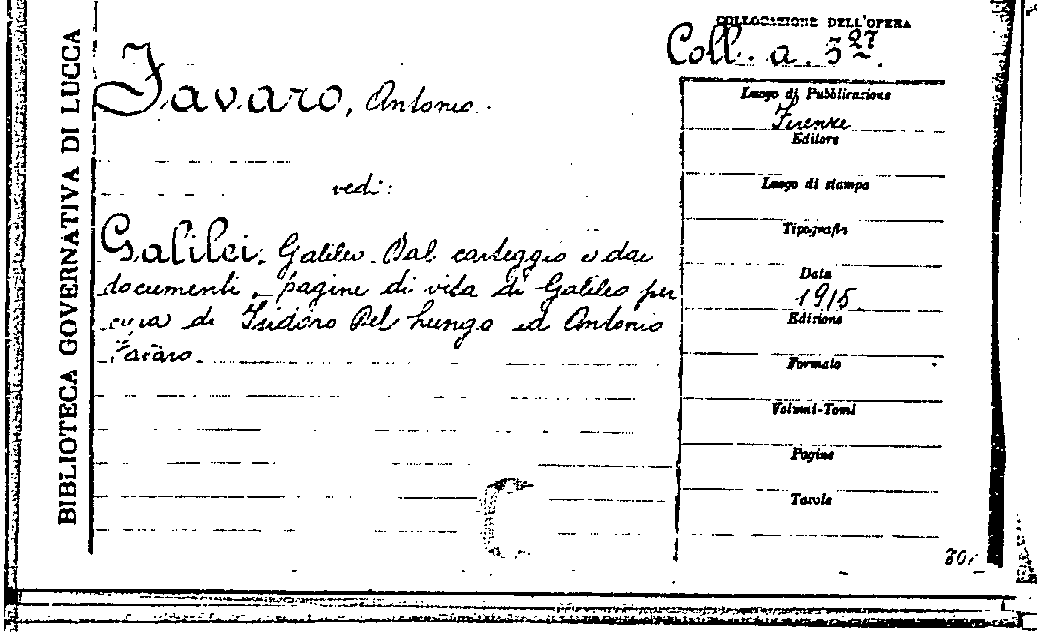 BIBLIOTECA GOVERNATIVA DI LUCCA
COLLOCAZIONE DELL'OPERA
Coll. a. 3 27.
Favaro, Antonio.
vedi:
Galilei, Galileo. Dal carteggio e dai
documenti, pagine di vita di Galileo per
cura di Isidoro Del Lungo ed Antonio
Favaro.
Luogo di Pubblicazione
Firenze
Editore
Luogo di stampa
Tipografia
Data
1915
Edizione
Formato
Volumi-Tomi
Pagine
Tavole